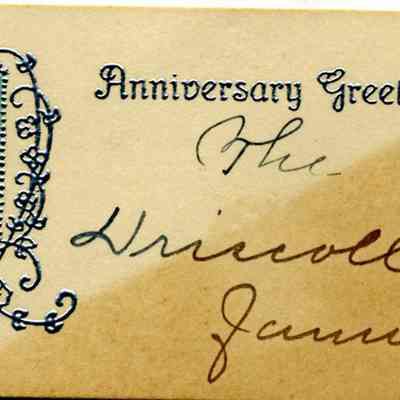 Anniversary Greet
The
Driscoll